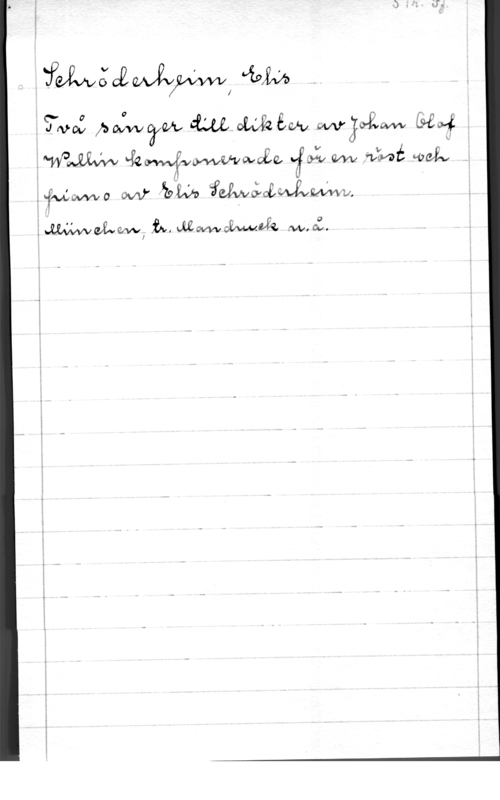 Schröderheim, Elis
Två sånger till dikter av Johan Olof
Wallin komponerade för en röst och
piano av Elis Schröderheim.
München, tr. Mandruck u.å.